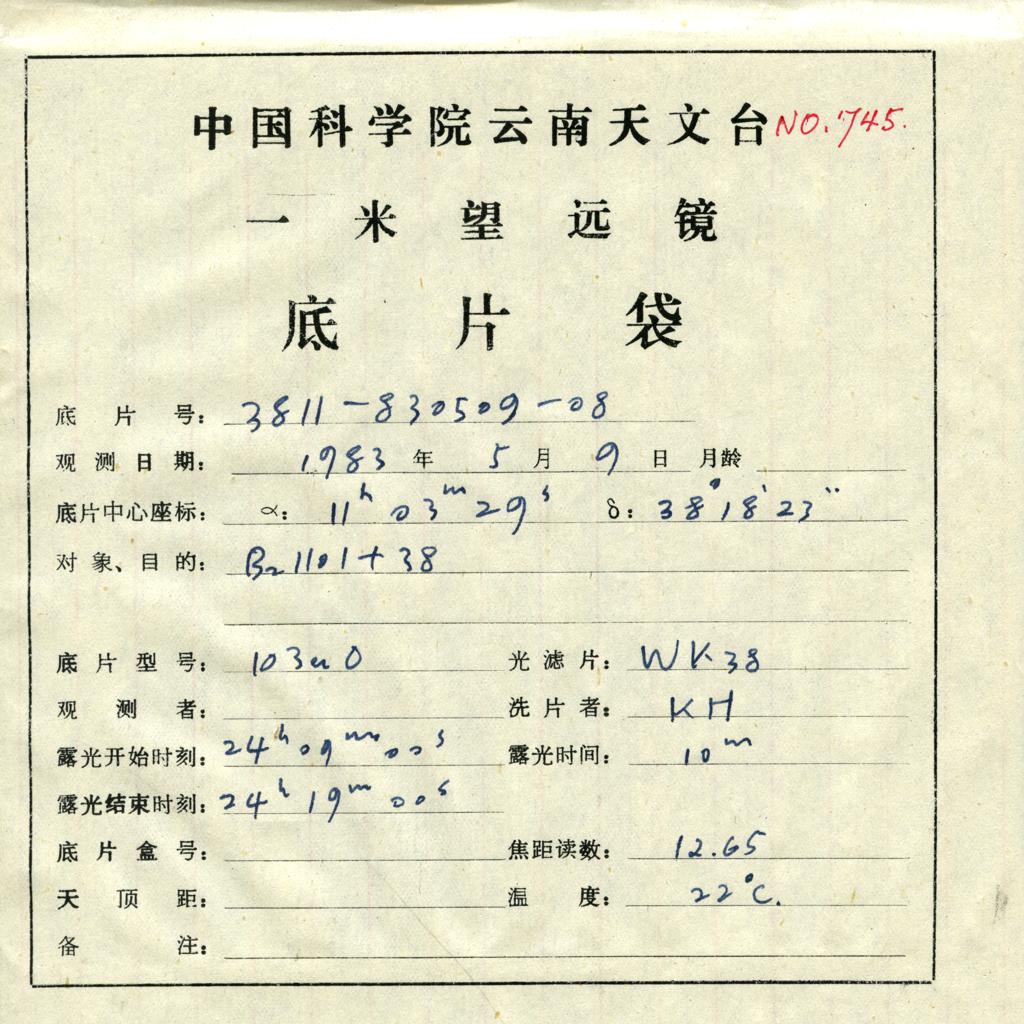 中国科学院云南天文台 NO.745.
一米望远镜
底片袋
底片号: 3811-830509-08
观测日期: 1983 年 5 月 9 日 月龄
底片中心座标: α: 11h 03m 29s δ: 38°18′23″
对象、目的: B2 1101+38
底片型号: 103aO 光滤片: WK38
观测者: 洗片者: KH
露光开始时刻: 24h 09m 00s 露光时间: 10m
露光结束时刻: 24h 19m 00s
底片盒号: 焦距读数: 12.65
天顶距: 温度: 22°C.
备注: